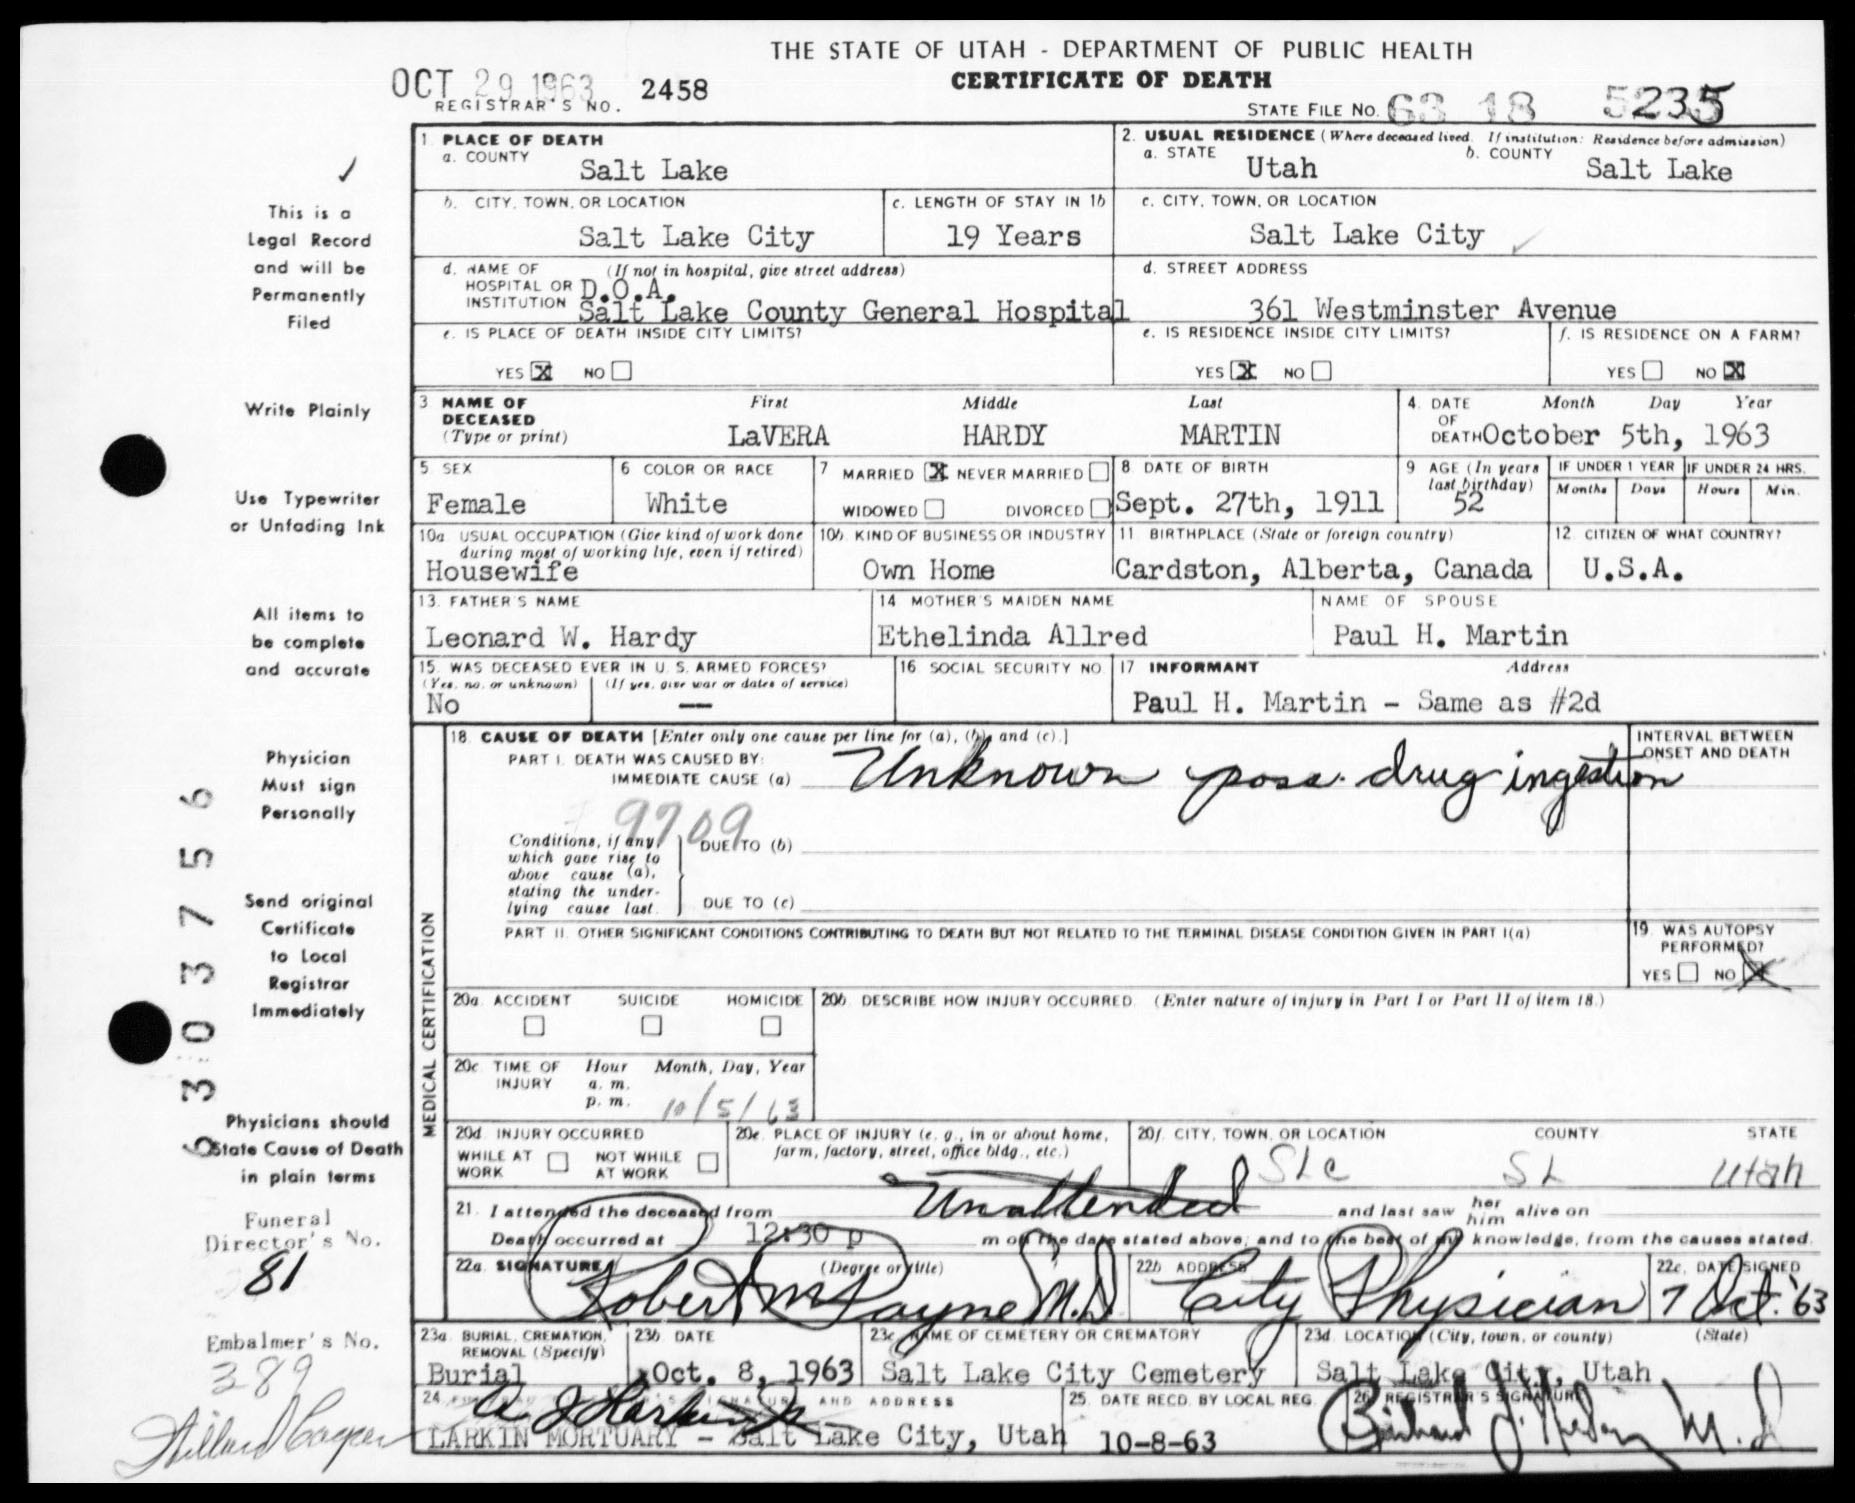 THE STATE OF UTAH - DEPARTMENT OF PUBLIC HEALTH
CERTIFICATE OF DEATH
OCT 29 1963
REGISTRAR'S NO. 2458
STATE FILE NO. 63 18 5235
This is a
Legal Record
and will be
Permanently
Filed
Write Plainly
Use Typewriter
or Unfading Ink
All items to
be complete
and accurate
Physician
Must sign
Personally
Send original
Certificate
to Local
Registrar
Immediately
Physicians should
State Cause of Death
in plain terms
Funeral
Director's No.
81
Embalmer's No.
389
6303756
1. PLACE OF DEATH
a. COUNTY
Salt Lake
2. USUAL RESIDENCE (Where deceased lived. If institution: Residence before admission)
a. STATE Utah b. COUNTY Salt Lake
b. CITY, TOWN, OR LOCATION
Salt Lake City
c. LENGTH OF STAY IN 1b
19 Years
c. CITY, TOWN, OR LOCATION
Salt Lake City
d. NAME OF (If not in hospital, give street address)
HOSPITAL OR D.O.A.
INSTITUTION Salt Lake County General Hospital
d. STREET ADDRESS
361 Westminster Avenue
e. IS PLACE OF DEATH INSIDE CITY LIMITS?
YES X NO
e. IS RESIDENCE INSIDE CITY LIMITS?
YES X NO
f. IS RESIDENCE ON A FARM?
YES NO X
3 NAME OF First Middle Last
DECEASED
(Type or print) LaVERA HARDY MARTIN
4. DATE Month Day Year
OF
DEATH October 5th, 1963
5 SEX
Female
6 COLOR OR RACE
White
7 MARRIED X NEVER MARRIED
WIDOWED DIVORCED
8 DATE OF BIRTH
Sept. 27th, 1911
9 AGE (In years
last birthday)
52
IF UNDER 1 YEAR IF UNDER 24 HRS.
Months Days Hours Min.
10a USUAL OCCUPATION (Give kind of work done
during most of working life, even if retired)
Housewife
10b. KIND OF BUSINESS OR INDUSTRY
Own Home
11 BIRTHPLACE (State or foreign country)
Cardston, Alberta, Canada
12 CITIZEN OF WHAT COUNTRY?
U.S.A.
13. FATHER'S NAME
Leonard W. Hardy
14 MOTHER'S MAIDEN NAME
Ethelinda Allred
NAME OF SPOUSE
Paul H. Martin
15. WAS DECEASED EVER IN U. S. ARMED FORCES?
(Yes, no, or unknown) (If yes, give war or dates of service)
No —
16 SOCIAL SECURITY NO.
17 INFORMANT Address
Paul H. Martin - Same as #2d
MEDICAL CERTIFICATION
18. CAUSE OF DEATH [Enter only one cause per line for (a), (b), and (c).]
PART I. DEATH WAS CAUSED BY:
IMMEDIATE CAUSE (a) Unknown poss. drug ingestion
INTERVAL BETWEEN
ONSET AND DEATH
9709
Conditions, if any,
which gave rise to
above cause (a),
stating the under-
lying cause last.
DUE TO (b)
DUE TO (c)
PART II. OTHER SIGNIFICANT CONDITIONS CONTRIBUTING TO DEATH BUT NOT RELATED TO THE TERMINAL DISEASE CONDITION GIVEN IN PART I(a)
19. WAS AUTOPSY
PERFORMED?
YES NO X
20a. ACCIDENT SUICIDE HOMICIDE
20b. DESCRIBE HOW INJURY OCCURRED. (Enter nature of injury in Part I or Part II of item 18.)
20c. TIME OF Hour Month, Day, Year
INJURY a. m.
p. m. 10/5/63
20d. INJURY OCCURRED
WHILE AT NOT WHILE
WORK AT WORK
20e. PLACE OF INJURY (e. g., in or about home,
farm, factory, street, office bldg., etc.)
20f. CITY, TOWN, OR LOCATION COUNTY STATE
SLC SL Utah
21. I attended the deceased from Unattended and last saw her him alive on
Death occurred at 12:30 p m on the date stated above; and to the best of my knowledge, from the causes stated.
22a. SIGNATURE (Degree or title)
Robert M Payne M.D
22b ADDRESS
City Physician
22c. DATE SIGNED
7 Oct. '63
23a. BURIAL, CREMATION,
REMOVAL (Specify)
Burial
23b DATE
Oct. 8, 1963
23c NAME OF CEMETERY OR CREMATORY
Salt Lake City Cemetery
23d. LOCATION (City, town, or county) (State)
Salt Lake City, Utah
24. SIGNATURE AND ADDRESS
LARKIN MORTUARY - Salt Lake City, Utah
25. DATE RECD. BY LOCAL REG.
10-8-63
26. REGISTRAR'S SIGNATURE
M.D